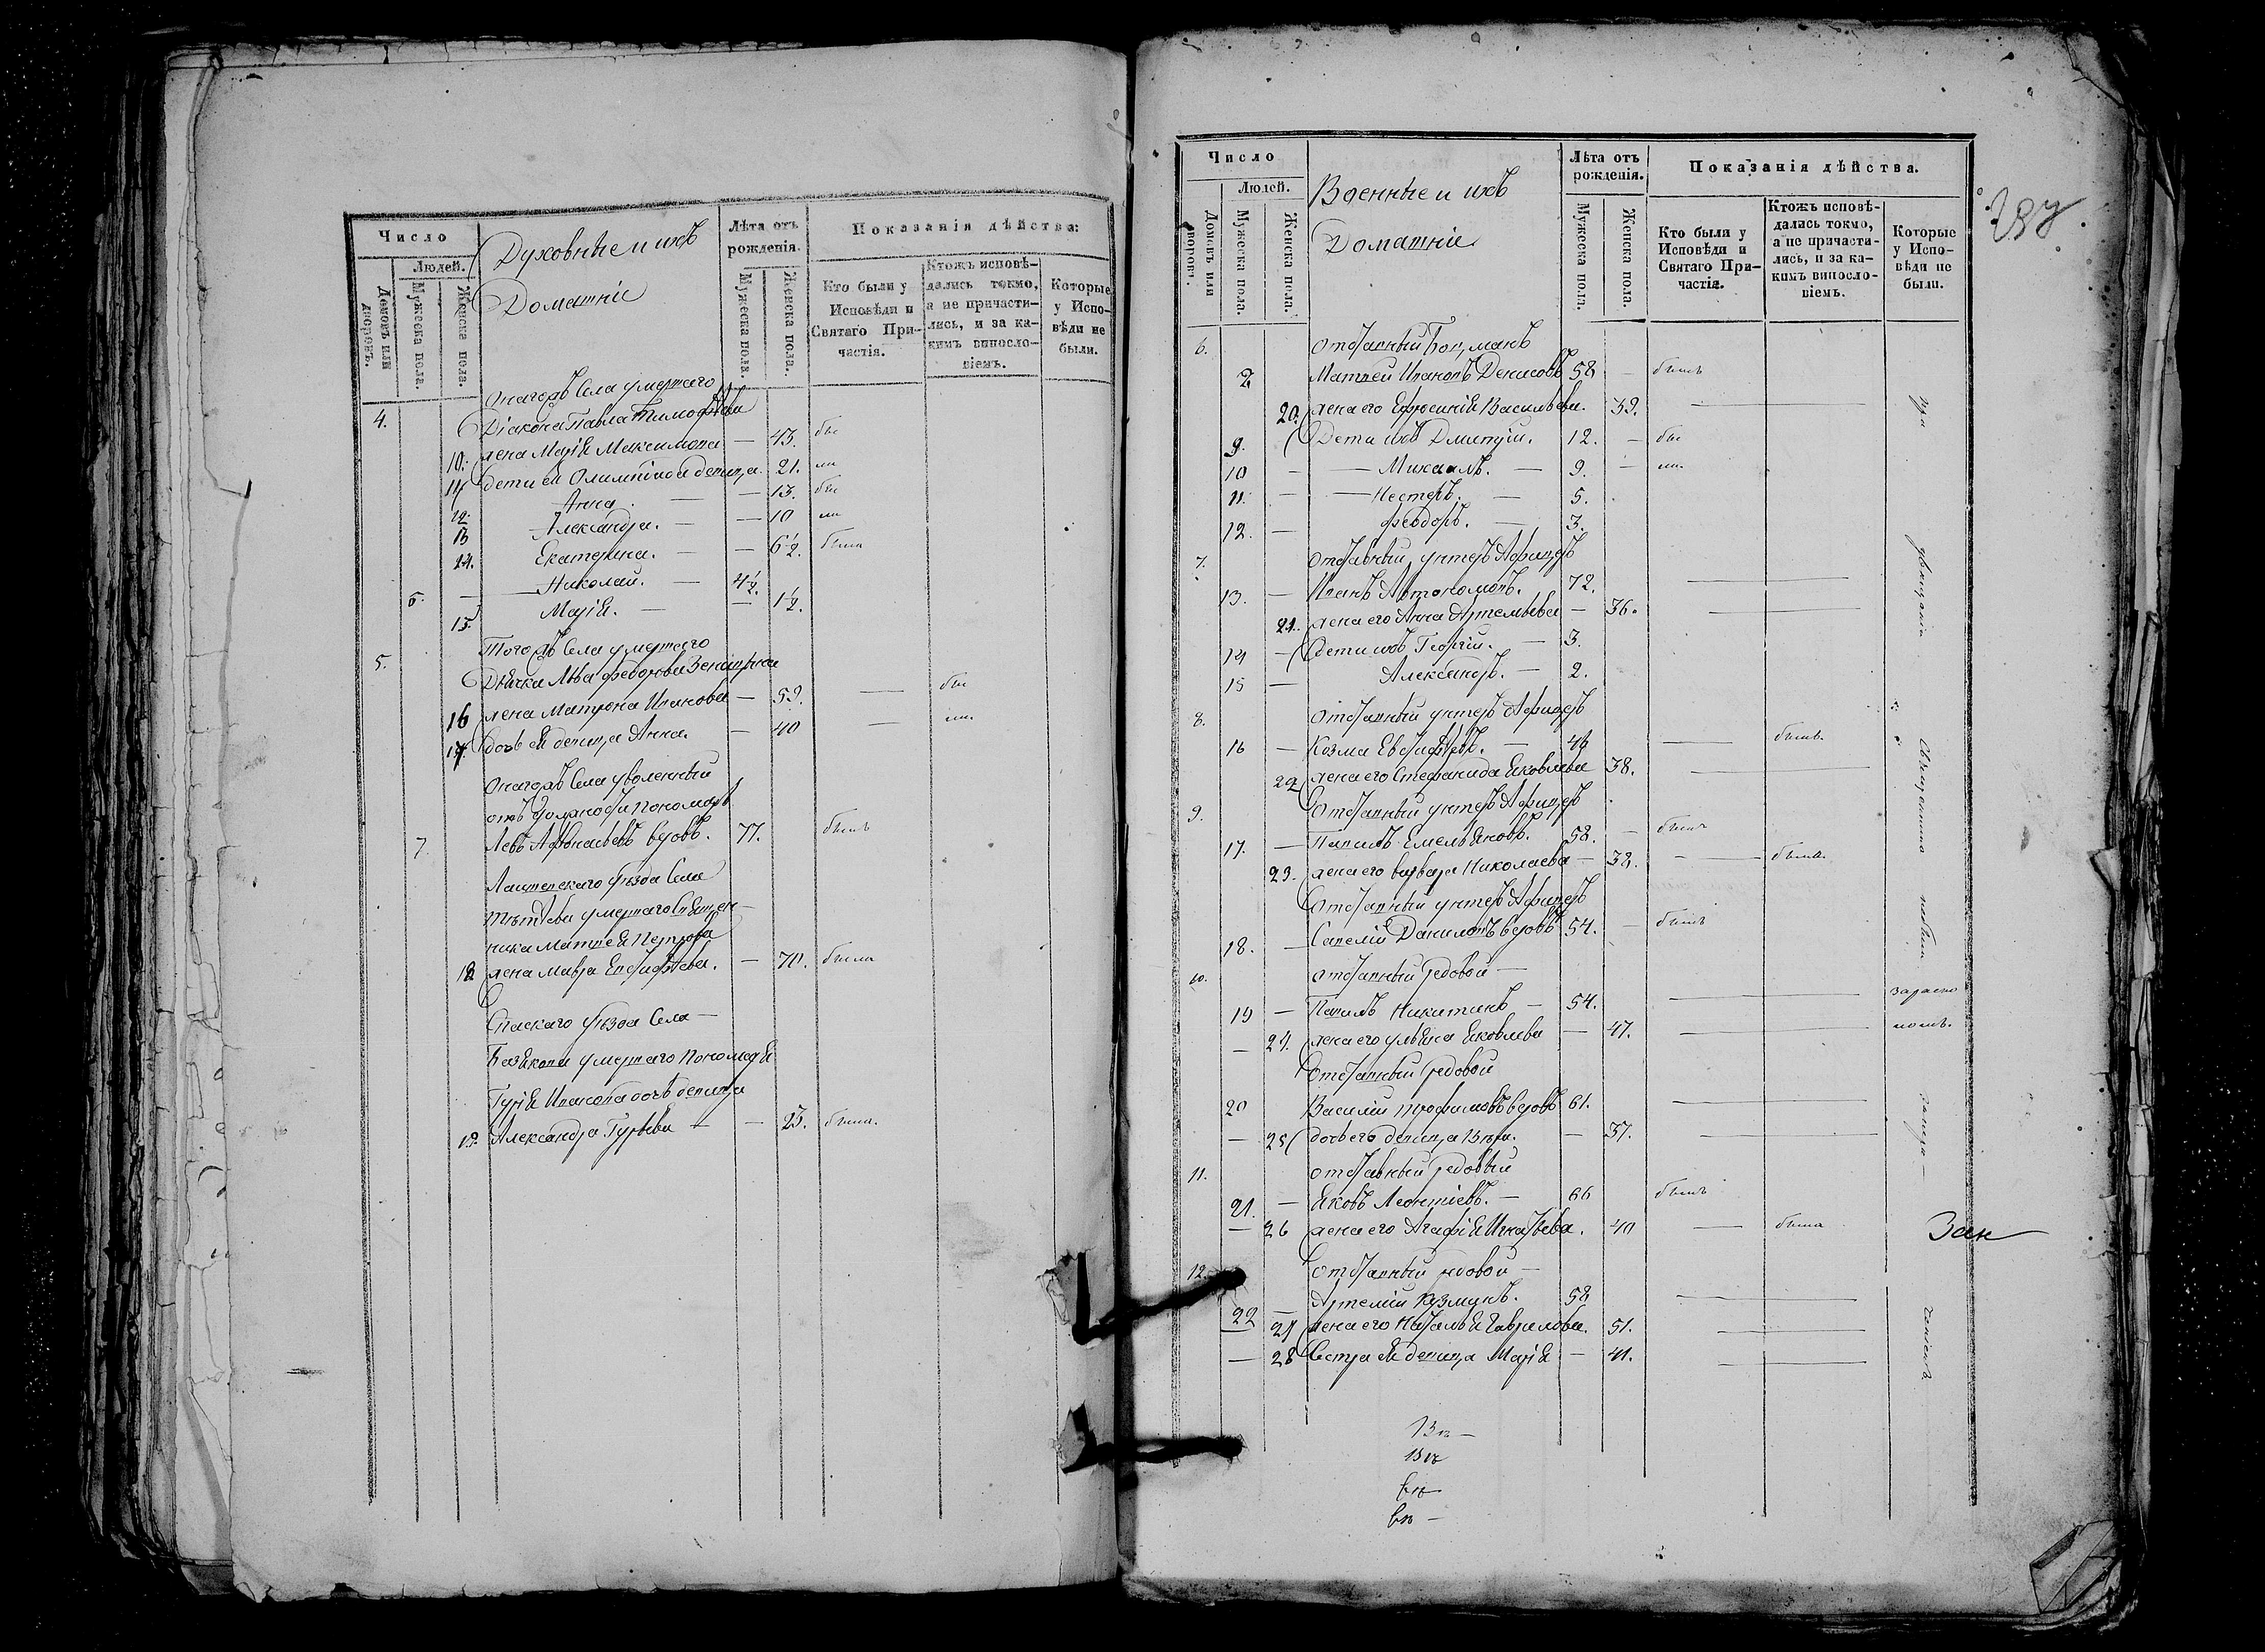 Число
Людей.
Домовъ или дворовъ.
Мужеска пола.
Женска пола.
Духовные и ихъ
Домашніе
Лѣта отъ рожденія.
Мужеска пола.
Женска пола.
Показанія дѣйства:
Кто были у Исповѣди и Святаго Причастія.
Ктожъ исповѣдались токмо, а не причастились, и за какимъ винословіемъ.
Которые у Исповѣди не были.
Онагожъ Села умершаго
4. Діакона Павла Тимофѣева
10. жена Марія Максимова — 43. бы
11 дети ея Олимпіада девица. 21. ли
12. Анна. — — 13. бы
13 Александра. — — 10 ли
14. Екатерина. — — 6 1/2. была
6. — Николай. — 4 1/2.
15. Марія. — — 1 1/2.
Тогожъ Села умершаго
5. Дьячка Льва Федорова
16 жена Матрона Иванова — 59. — бы
17. дочь ея девица Анна. — 40 — ли.
Онагожъ Села уволенный
отъ должности пономарь
7 Левъ Афонасьевъ вдовъ. 77. былъ
Лаишевскаго уѣзда Села
умершаго Священ-
ника Матвея Петрова
18 жена Мавра Евстифѣева. — 70. была
Спаскаго уѣзда Села —
умершаго пономаря
Гурія Иванова дочь девица
19. Александра Гурьева — — 23. была.
Число
Людей.
Домовъ или дворовъ.
Мужеска пола.
Женска пола.
Военные и ихъ
Домашніе
Лѣта отъ рожденія.
Мужеска пола.
Женска пола.
Показанія дѣйства.
Кто были у Исповѣди и Святаго Причастія.
Ктожъ исповѣдались токмо, а не причастились, и за какимъ винословіемъ.
Которые у Исповѣди не были.
6. Отставный Боцманъ
Матвей Ивановъ Денисовъ 58 — былъ
20. жена его Ефросинія Васильева. 39. —
9. Дети ихъ Дмитрій. 12. — бы
10 — — Михаилъ. — 9. — ли.
11. — — Нестеръ. — 5.
12. — Феодоръ. — 3.
7. Отставный унтеръ Афицеръ
13. — Иванъ Автономовъ. 72. —
21. жена его Анна Артемьева — 36. —
14 — Дети ихъ Георгій. — 3.
15 — Александръ. — 2.
8. Отставный унтеръ Афицеръ
16 — Козма Евстифѣевъ. — — былъ.
22 жена его Стефанида Яковлева 38. —
9. Отставный унтеръ Афицеръ
17. — Павилъ Емельяновъ. 58. — былъ
23. жена его варвара Николаева — 38. — была.
Отставный унтеръ Афицеръ
18. — Савелій Даниловъ вдовъ 54. — былъ
10. Отставный редовой —
19 — Павилъ Никитинъ — 54. —
— 24. жена его ульяна Яковлева — 47. —
Отставный редовой
20 Василій Трофимовъ вдовъ 61. —
— 25 дочь его девица — 37. —
11. Отставный редовый
21. — Яковъ Леонтіевъ. — 66 былъ
— 26 жена его Агафія Игнатьева. 40 — была
12. Отставный редовой —
22 — Артемій Козминъ. 58 —
— 27 жена его Наталья Гаврилова. 51. —
— 28 Сестра ея девица Марія — 41. —